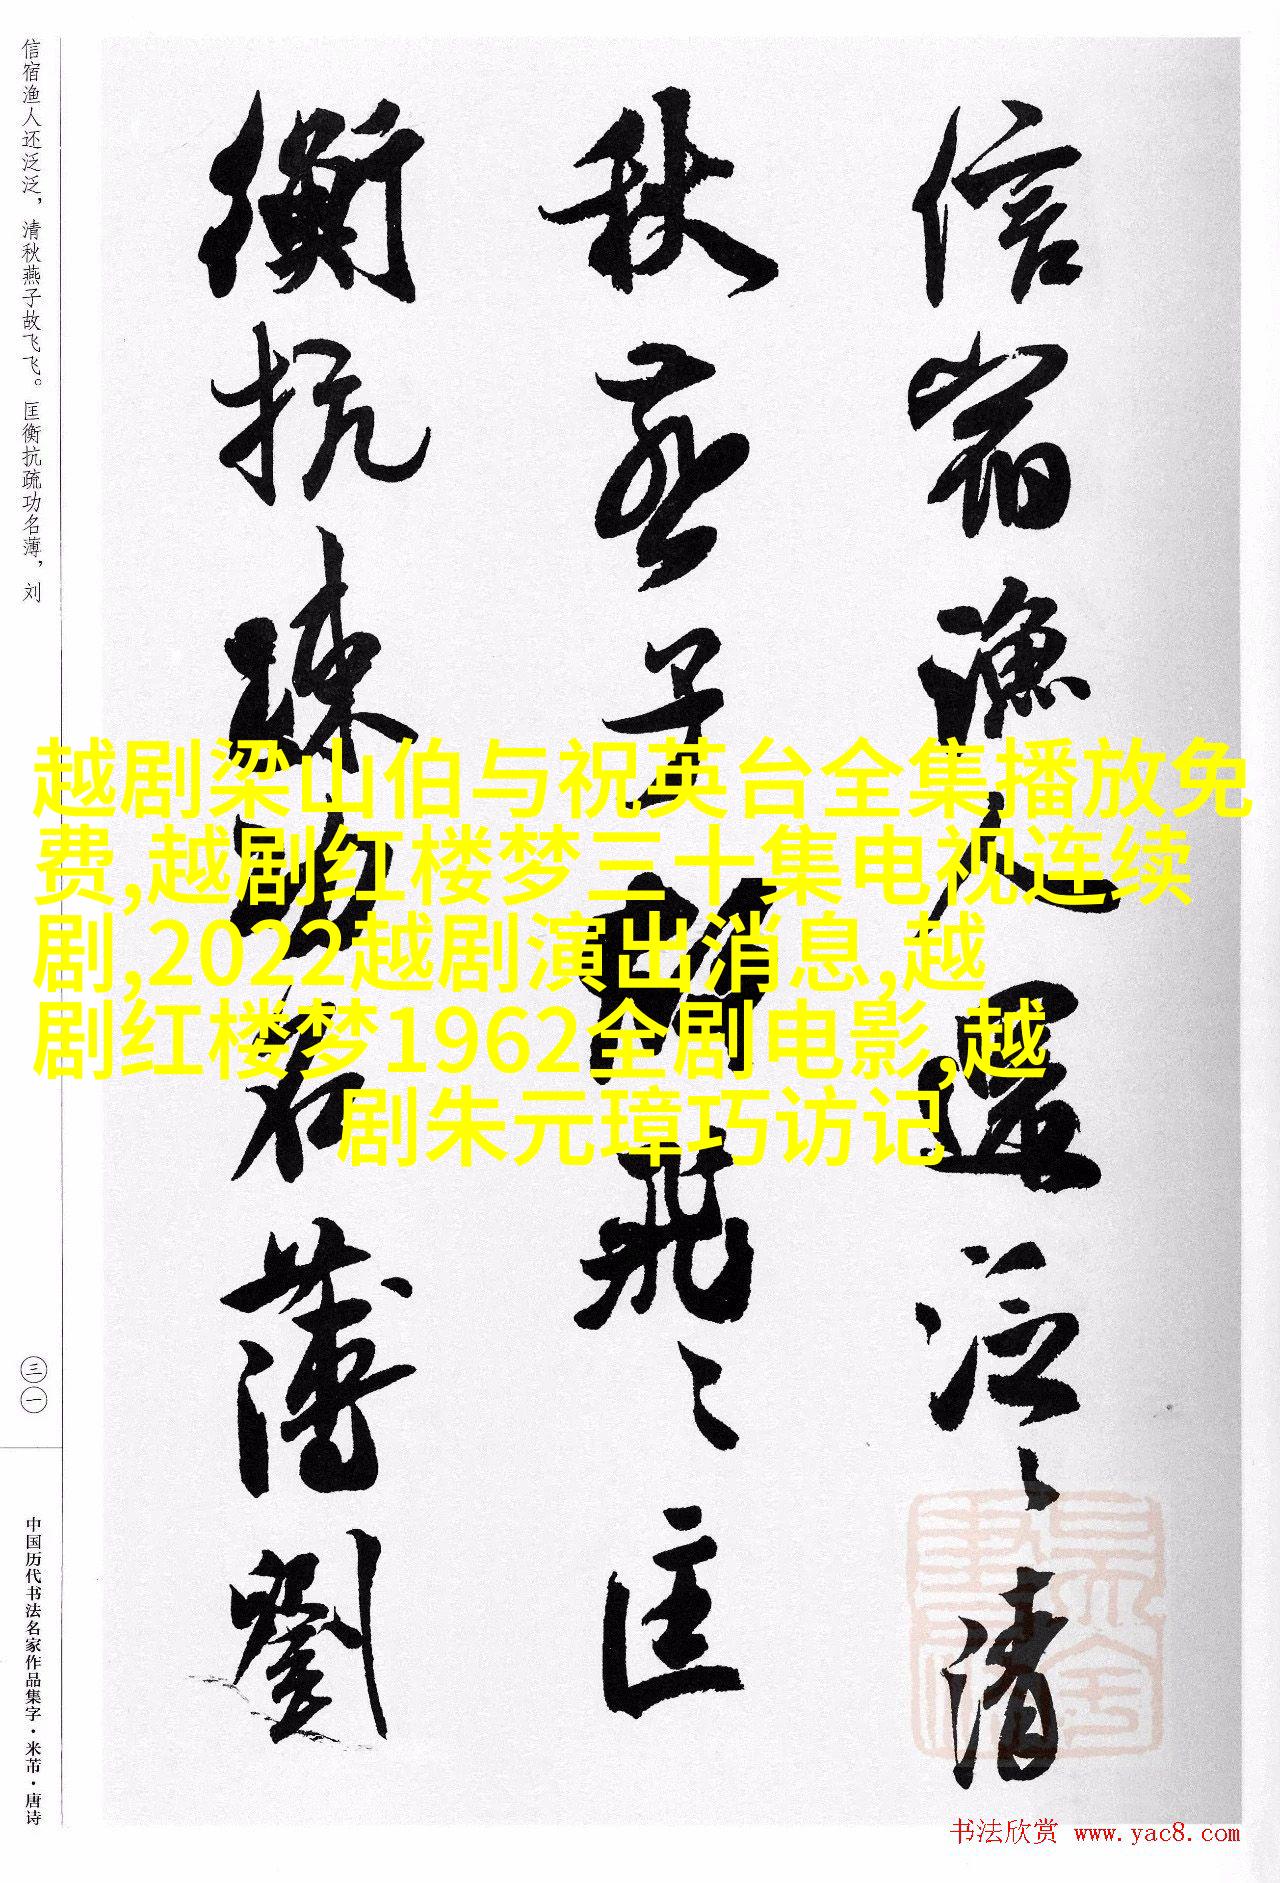 信宿渔人还泛泛，清秋燕子故飞飞。匡衡抗疏功名薄，刘
信宿漁人還泛〻清
秋燕子故飛〻匡
衡抗疏功名薄劉
越剧梁山伯与祝英台全集播放免
费,越剧红楼梦三十集电视连续
剧,2022越剧演出消息,越
剧红楼梦1962全剧电影,越
剧朱元璋巧访记
三一
中国历代书法名家作品集字·米芾·唐诗
书法欣赏 www.yac8.com